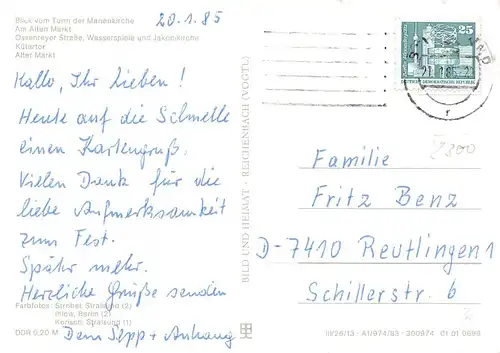 Blick vom Turm der Marienkirche
Am Alten Markt
Ossenreyer Straße, Wasserspiele und Jakobikirche
Kütertor
Alter Markt
20.1.85
Hallo, Ihr Lieben!
Heute auf die Schnelle
einen Kartengruß.
Vielen Dank für die
liebe Aufmerksamkeit
zum Fest.
Später mehr.
Herzliche Grüße senden
Farbfotos: Strobel, Stralsund (2)
Ihlow, Berlin (2)
Korsch, Stralsund (1)
DDR 0,20 M
Dem Sepp + Anhang
BILD UND HEIMAT · REICHENBACH (VOGTL)
25
DEUTSCHE DEMOKRATISCHE REPUBLIK
Familie
Fritz Benz
D-7410 Reutlingen 1
Schillerstr. 6
III/26/13 · A1/974/83 · 300974 01 01 0699